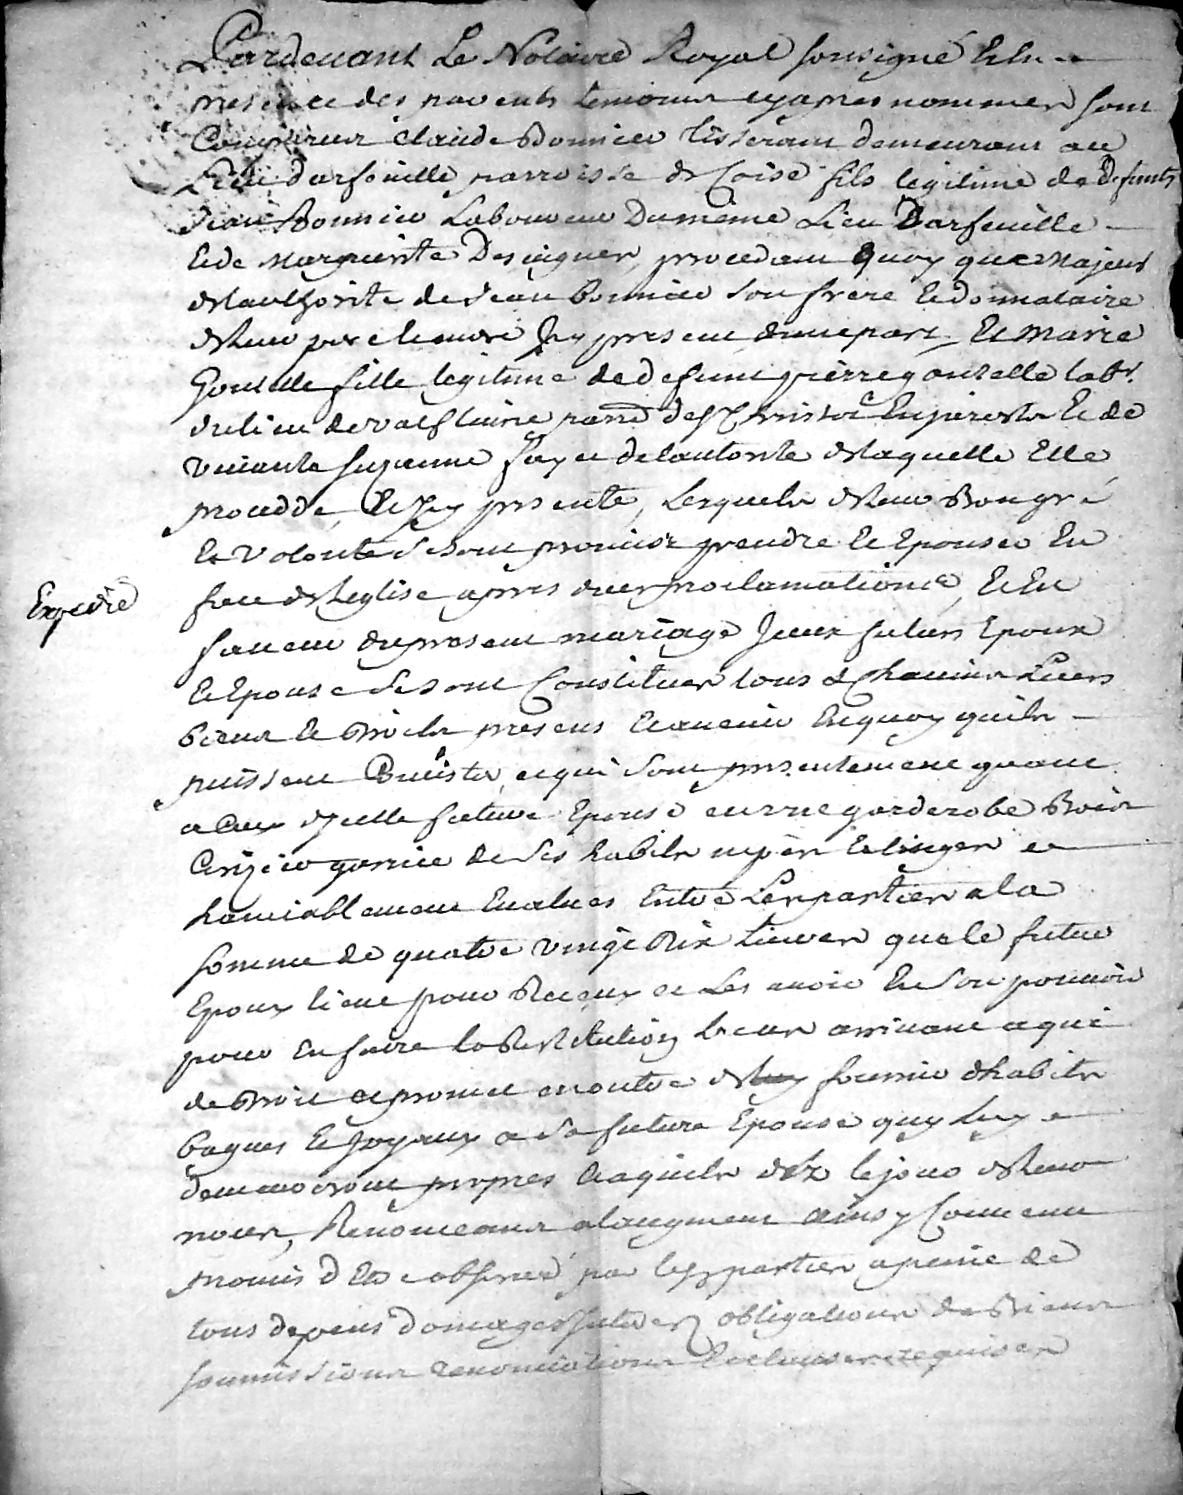 Pardevant Le Notaire Royal sousigné Et En
presence des parents temoins cy apres nommer sont
Comparus Claude Bonnier tisserant demeurant au
Lieu darfeuille parroisse de Coise fils legitime de defunts
Jean Bonnier Laboureur Du meme Lieu Darfeuille
Et de Marguerite procedant quoy que Majeur
de lauthorite de Jean bonnier son frere Et donnataire
de leur pere et mere Icy present dune part, Et Marie
Goutelle fille legitime de defunt pierre goutelle labr.
du lieu de parr. de St Christo En jarest Et de
vivante suzanne de lautorite de laquelle Elle
procedde, Et Icy presente, Lesquels de leur Bon gré
Et volonte se sont promis prendre Et Epouser En
face de leglise apres dues proclamations, Et En
faveur du present mariage Iceux futurs Epoux
Et Epouse se sont Constituer tous Et Chacuns Leurs
biens Et droits presens Et avenir En quoy quils
puissent Consister, et qui sont presentement quant
a Ceux dycelle future Epouse en une garderobe Bois
Cerizier garnie de ses habits Et linges et
hamiablement Evalues Entre Les parties a la
somme de quatre vingt dix Livres que le futur
Epoux tient pour Receux et Les avoir En son pouvoir
pour En faire la Restitution Le cas arrivant a qui
de droit et promet en outre de fournir dhabits
bagues Et Joyaux a sa future Epouse quy Luy
demeureront propres Et aquits dez le jour de leur
noces, Renonceans alaugment ainsy Convenu
promis dEtre observé par les parties a peine de
tous depens domages obligations de Biens
soumissions renonciations Et clauses requises
Expedié